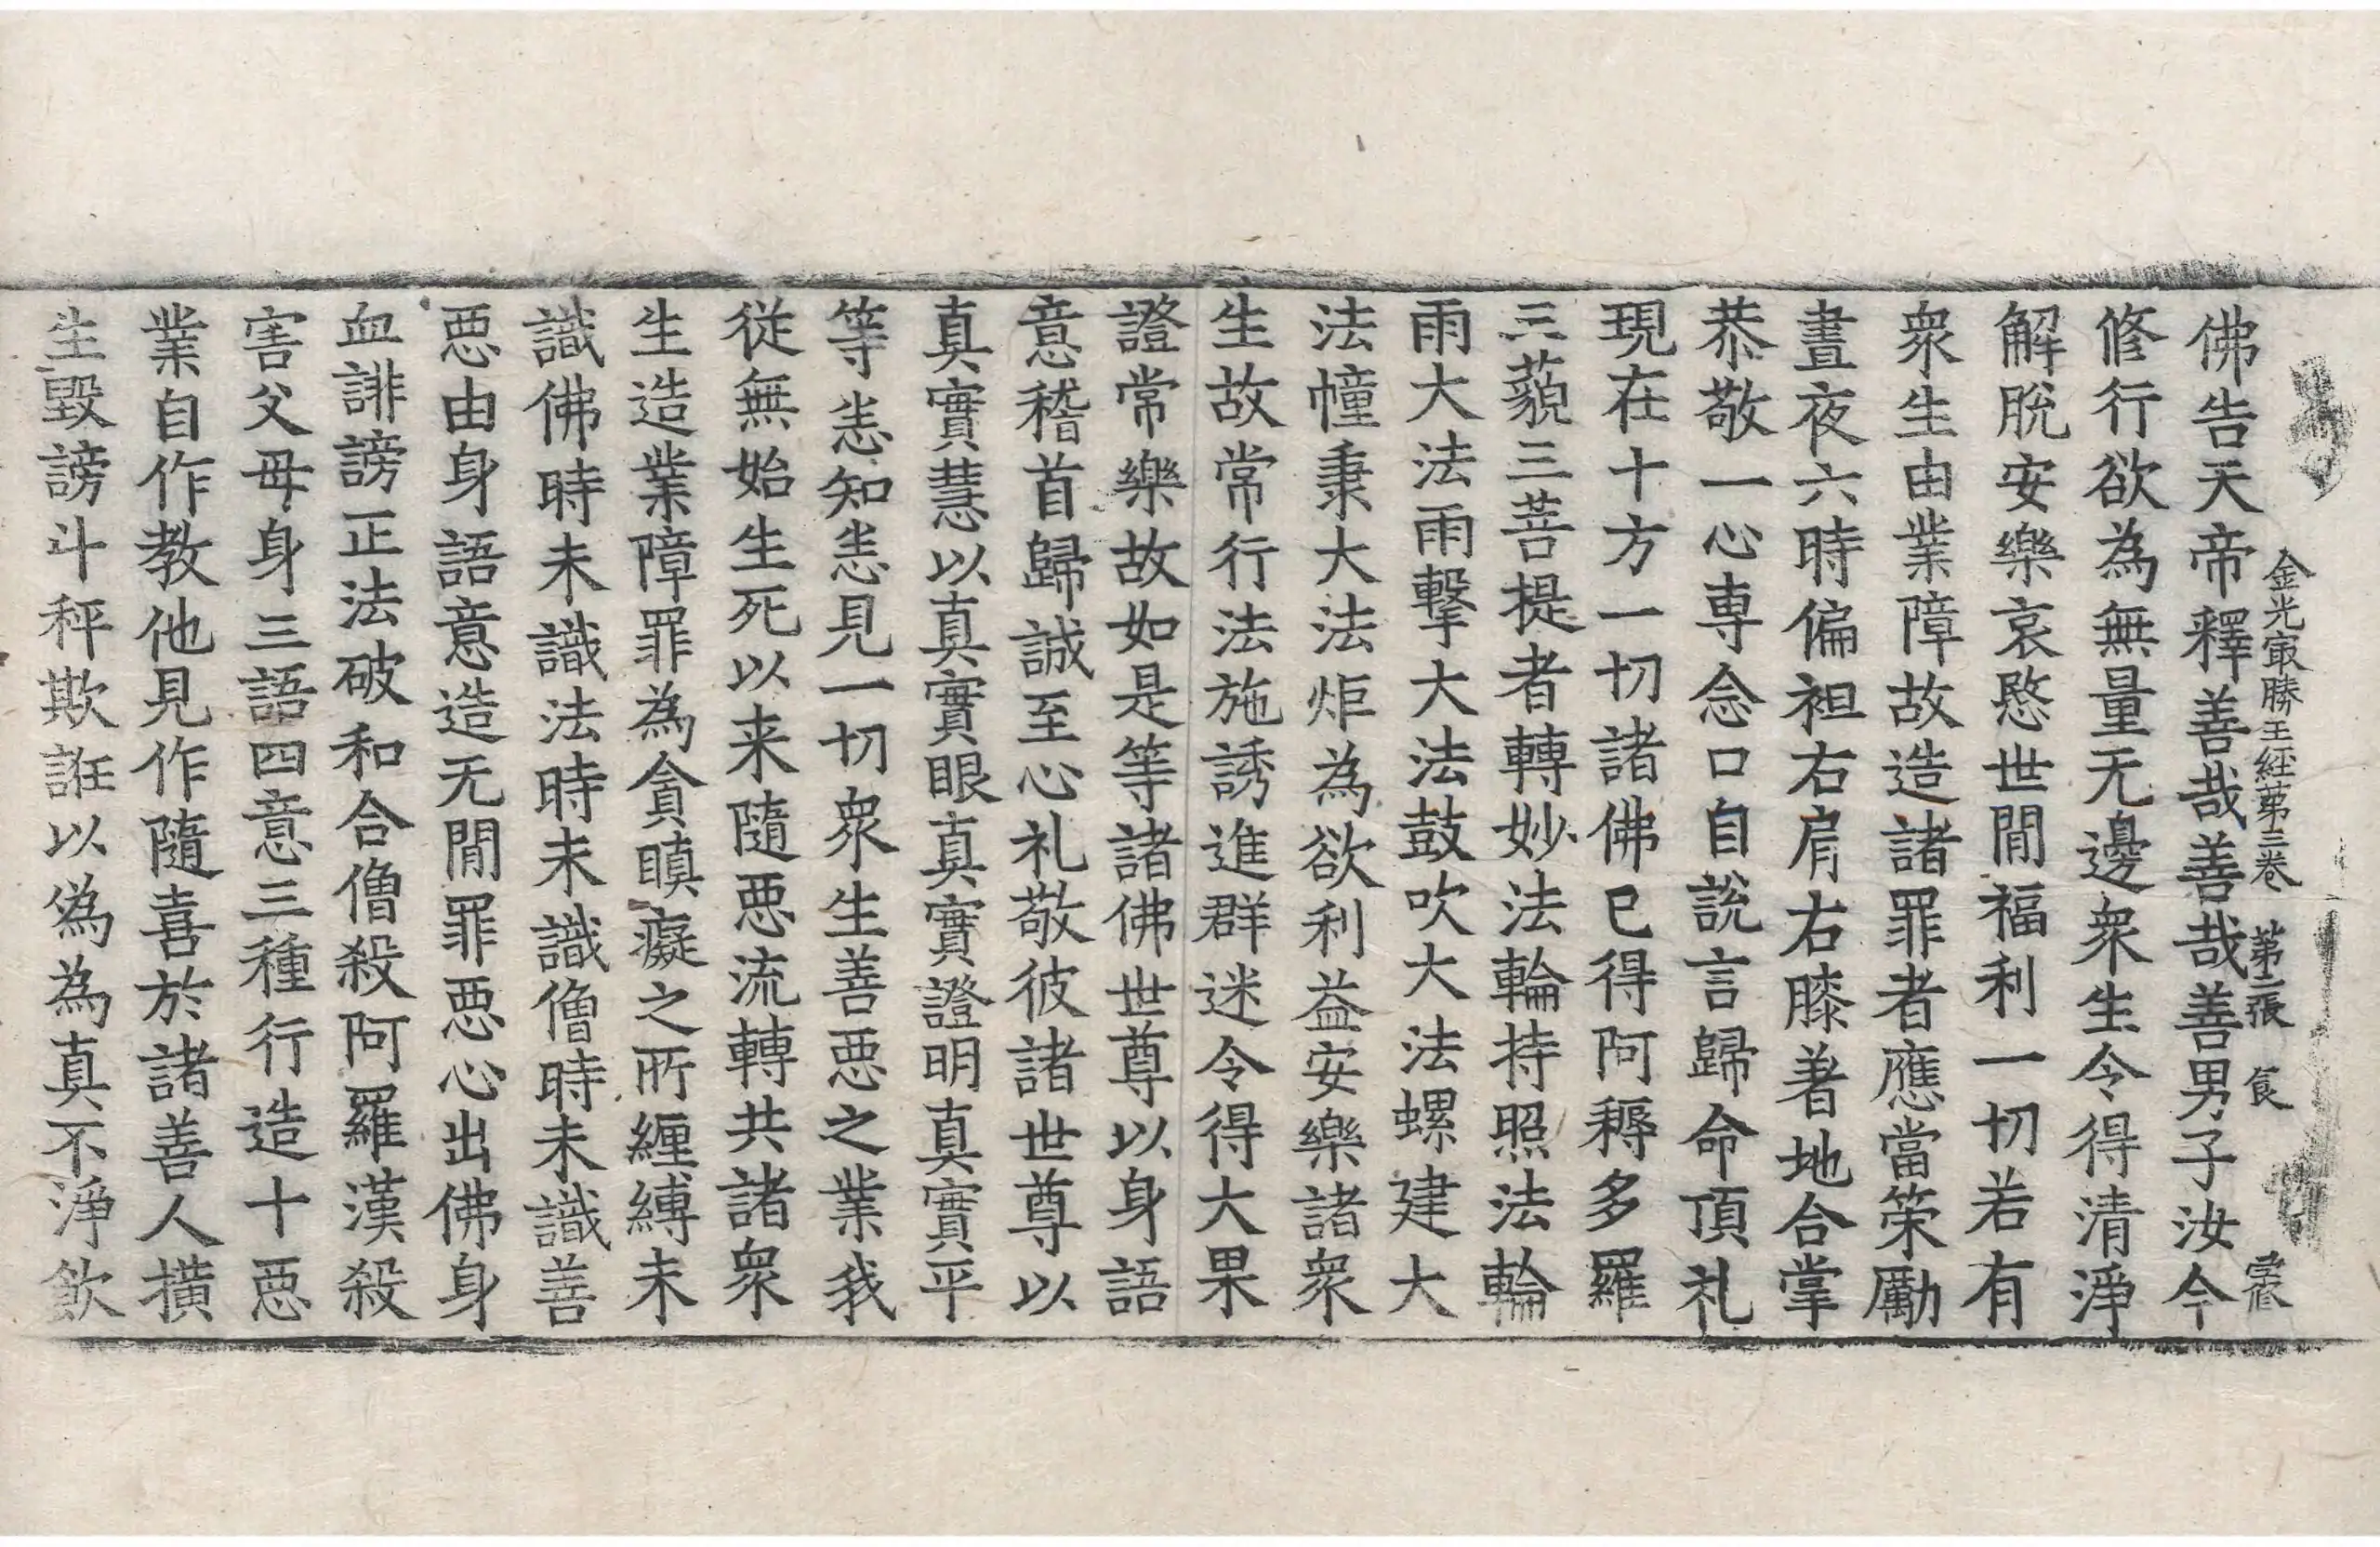 金光㝡勝王経苐三卷 苐二張 食 霔
佛告天帝釋善哉善哉善男子汝今
修行欲為無量无邊衆生令得清淨
解脫安樂哀愍世間福利一切若有
衆生由業障故造諸罪者應當策勵
晝夜六時偏袒右肩右膝著地合掌
恭敬一心専念口自說言歸命頂礼
現在十方一切諸佛已得阿耨多羅
三藐三菩提者轉妙法輪持照法輪
雨大法雨擊大法鼓吹大法螺建大
法幢秉大法炬為欲利益安樂諸衆
生故常行法施誘進群迷令得大果
證常樂故如是等諸佛世尊以身語
意稽首歸誠至心礼敬彼諸世尊以
真實慧以真實眼真實證明真實平
等悉知悉見一切衆生善惡之業我
從無始生死以来隨惡流轉共諸衆
生造業障罪為貪瞋癡之所纏縛未
識佛時未識法時未識僧時未識善
惡由身語意造无間罪惡心出佛身
血誹謗正法破和合僧殺阿羅漢殺
害父母身三語四意三種行造十惡
業自作教他見作隨喜於諸善人橫
生毀謗斗秤欺誑以偽為真不淨飲